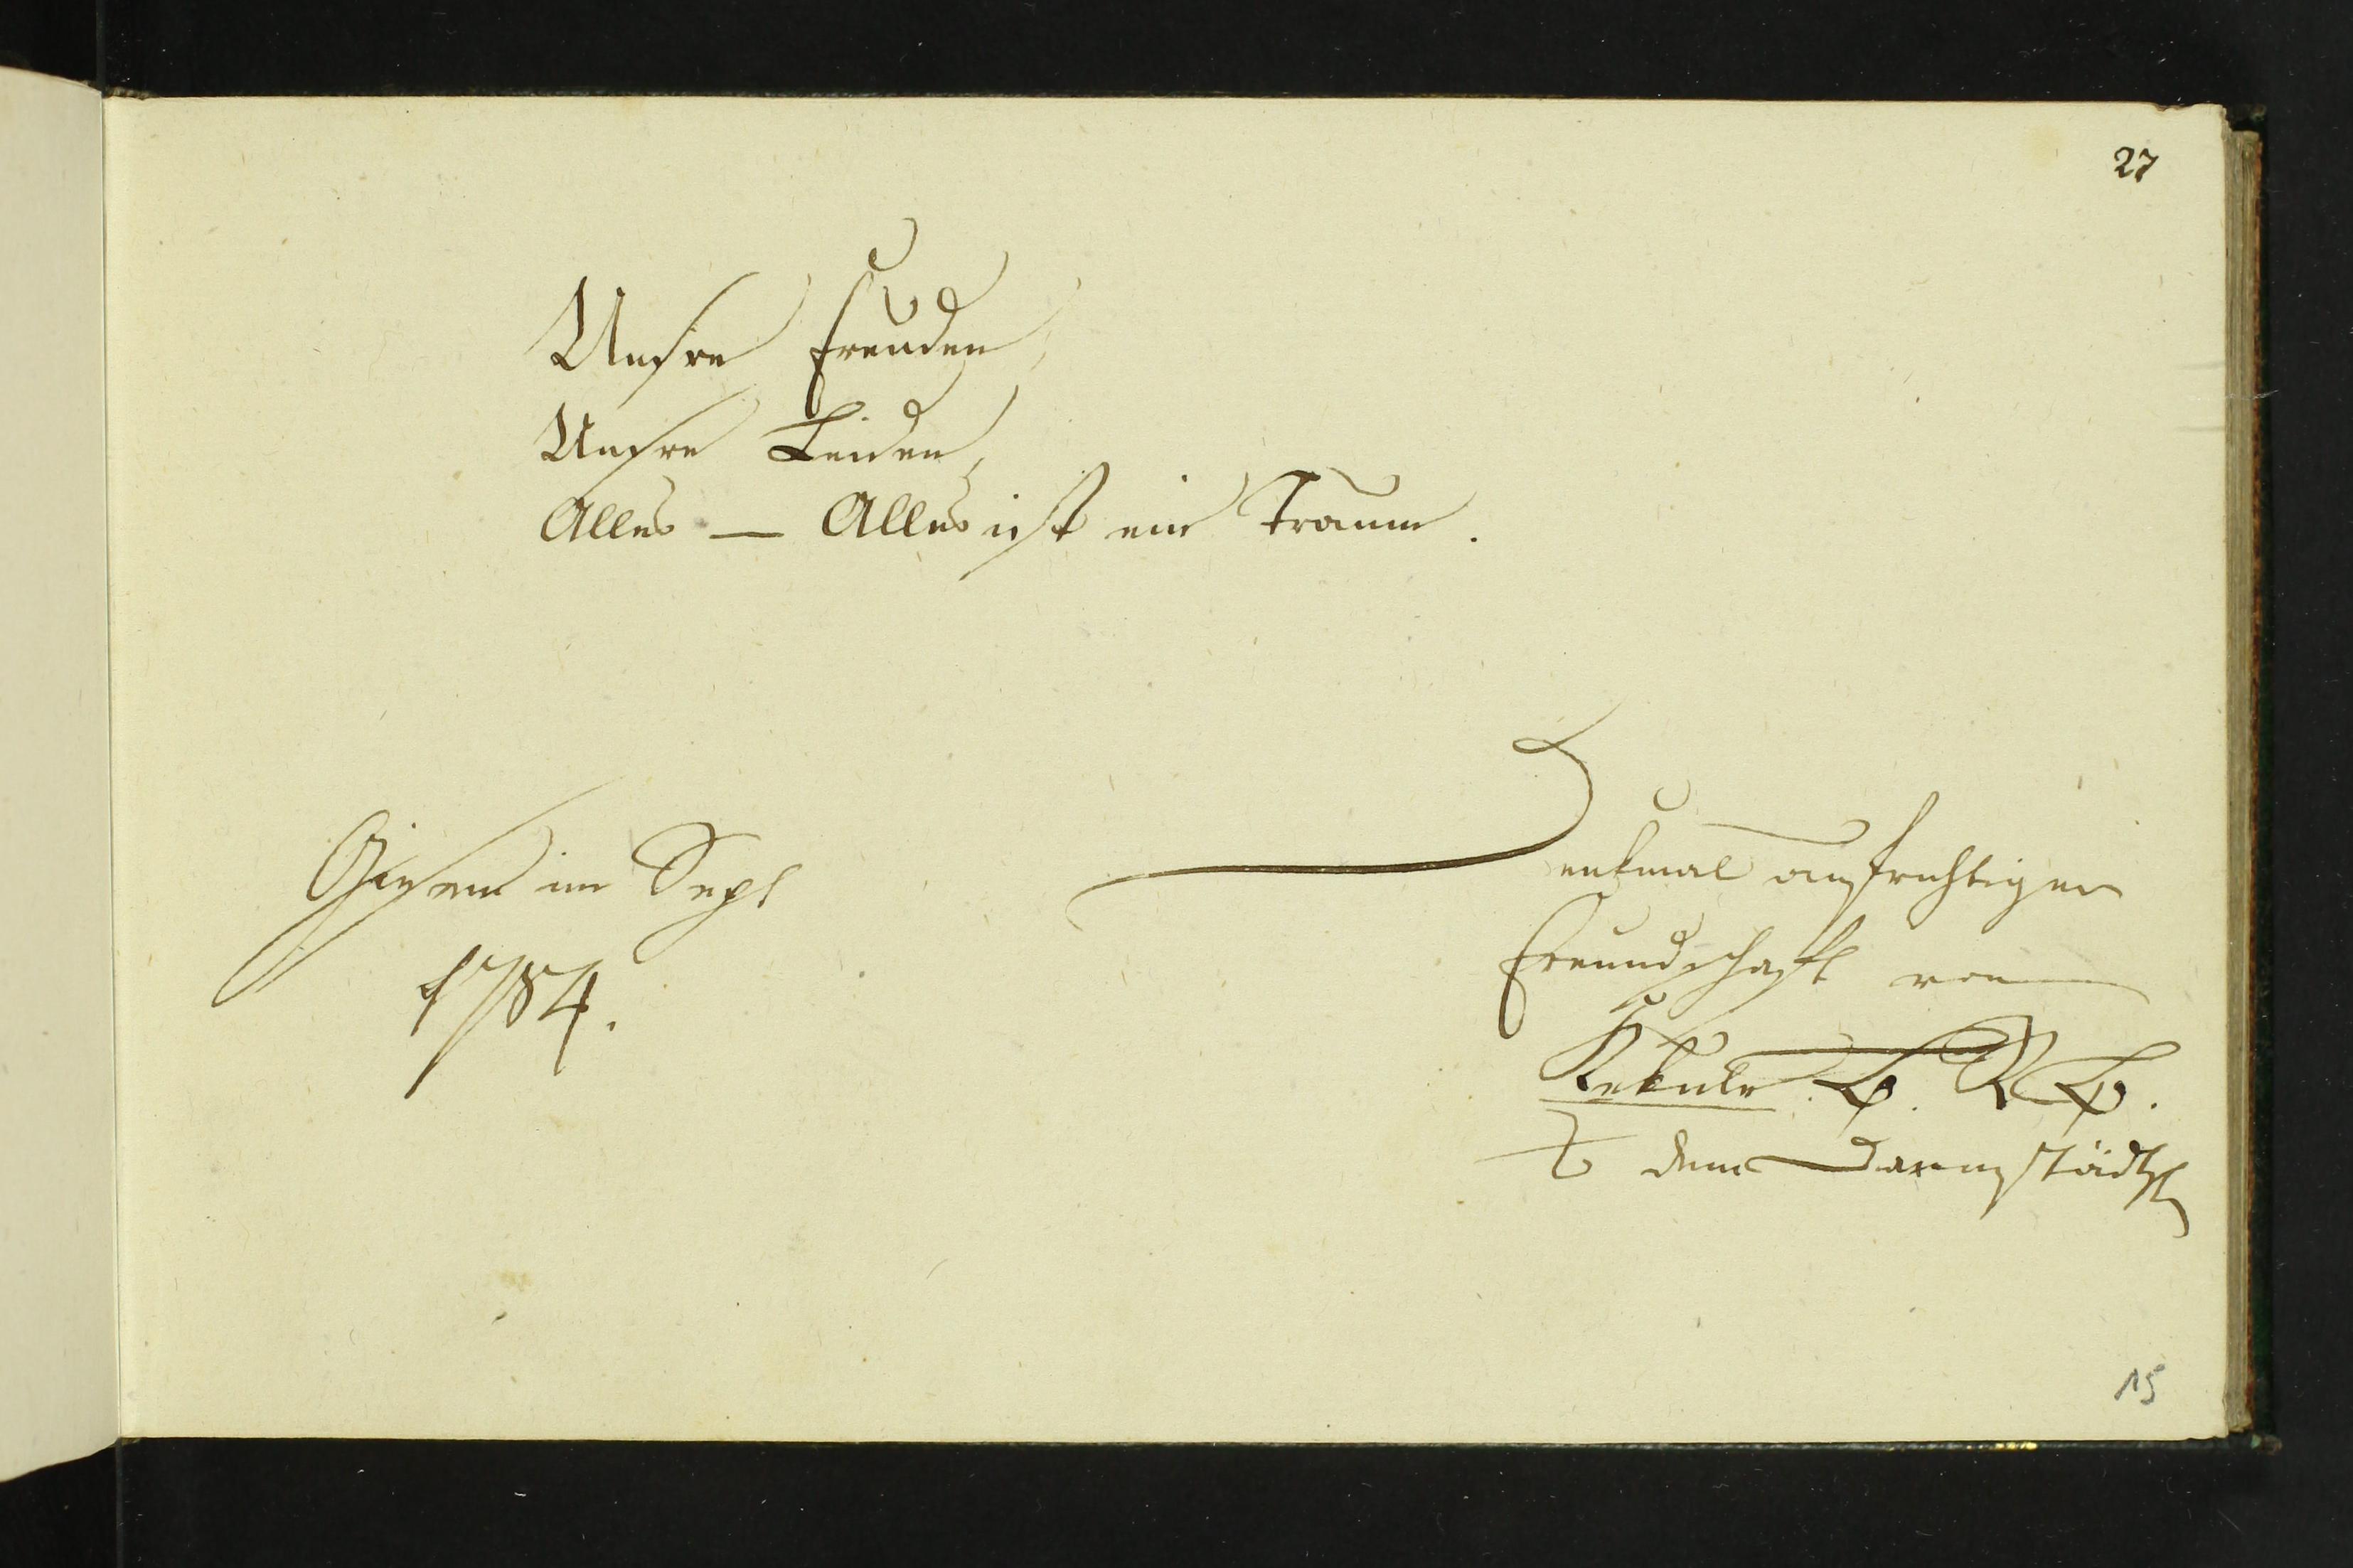 27
Unsre Freuden,
Unsre Leiden,
Alles — Alles ist ein Traum.
Giesen im Sept
1784.
Denkmal aufrichtiger
Freundschaft von
Kekule
dem Darmstädtsch
15